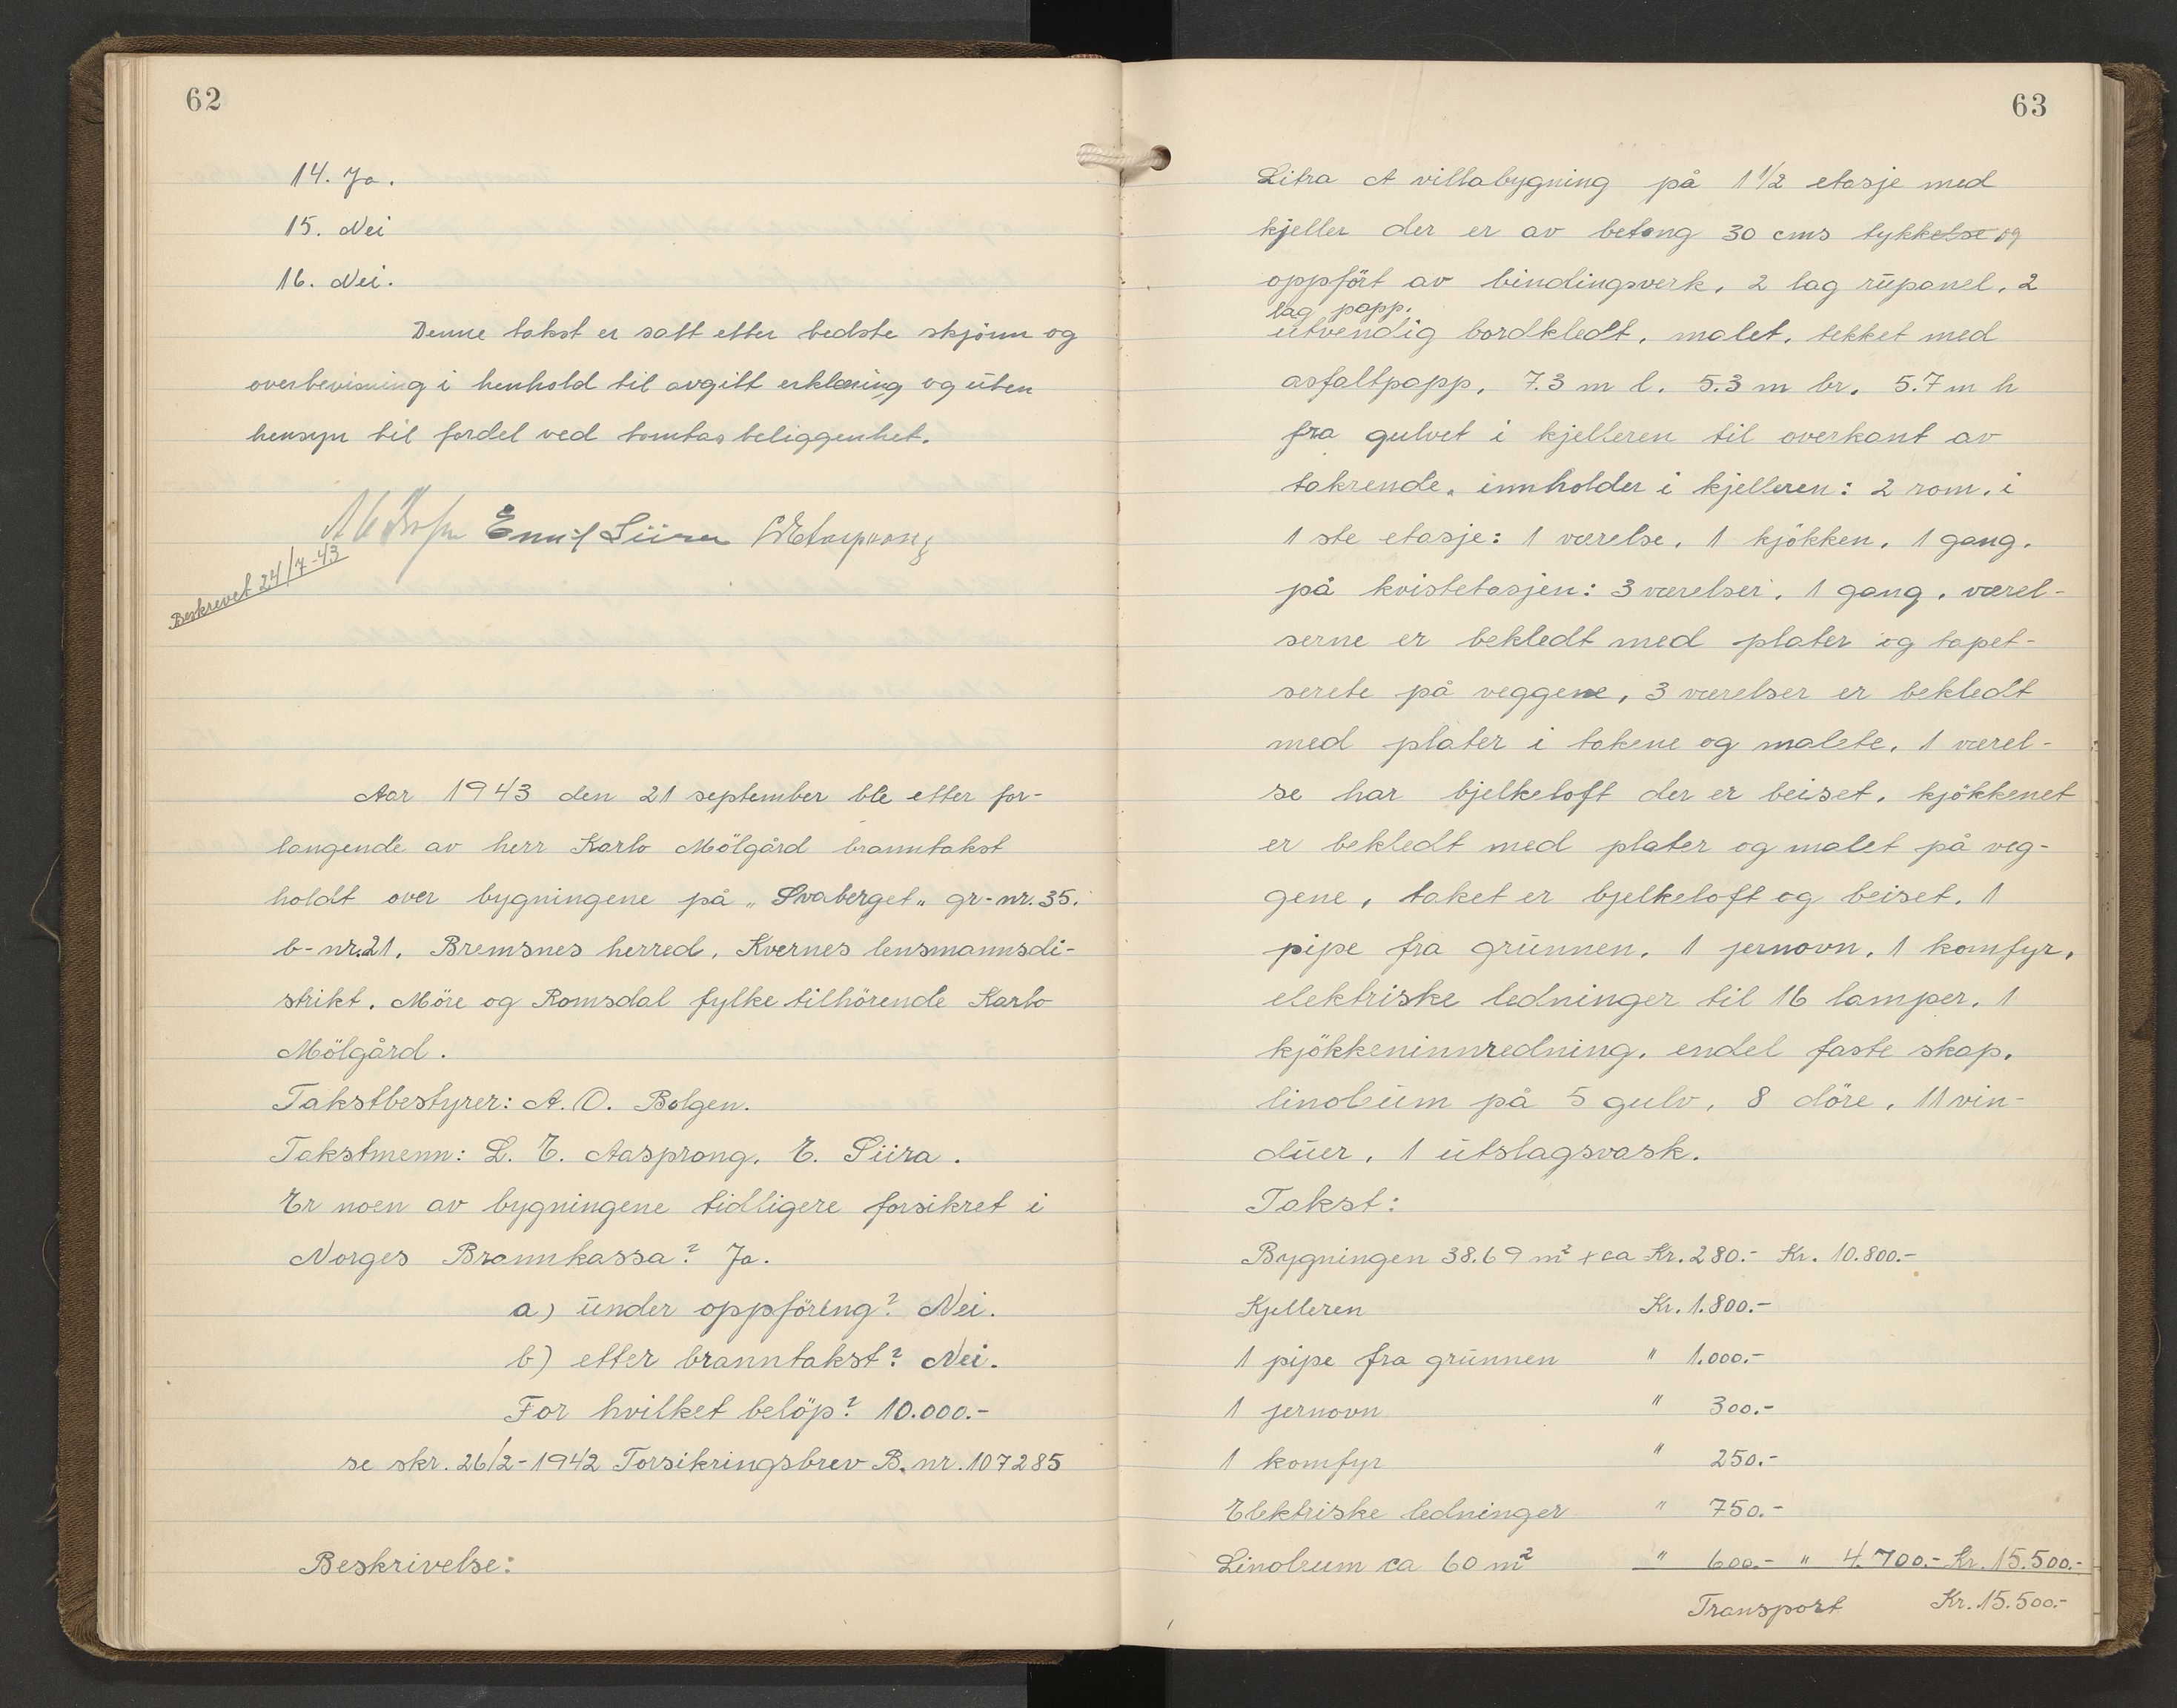 62
14. Ja.
15. Nei
16. Nei.
Denne takst er satt etter bedste skjönn og
overbevisning i henhold til avgitt erklæring og uten
hensyn til fordel ved tomtas beliggenhet.
Emil Siira L E Aasprong
Beskrevet 24/7-43
Aar 1943 den 21 september ble etter for-
langende av herr Karlo Mölgård branntakst
holdt over bygningene på „Svaberget„ gr-nr. 35.
b-nr. 21. Bremsnes herred, Kvernes lensmannsdi-
strikt. Möre og Romsdal fylke tilhörende Karlo
Mölgård.
Takstbestyrer: A. O. Bolgen.
Takstmenn: L. E. Aasprong, E. Siira.
Er noen av bygningene tidligere forsikret i
Norges Brannkassa? Ja.
a) under oppföring? Nei.
b) etter branntakst? Nei.
For hvilket belöp? 10.000.-
se skr. 26/2-1942 Forsikringsbrev B. nr. 107285
Beskrivelse:
63
Litra A villabygning på 1 1/2 etasje med
kjeller der er av betong 30 cms tykkelse og
oppfört av bindingsverk, 2 lag rupanel, 2
lag papp.
utvendig bordkledt, malet, tekket med
asfaltpapp, 7.3 m l. 5.3 m br. 5.7 m h
fra gulvet i kjelleren til overkant av
takrende. innholder i kjelleren: 2 rom. i
1 ste etasje: 1 værelse, 1 kjökken, 1 gang.
på kvistetasjen: 3 værelser, 1 gang. værel-
serne er bekledt med plater og tapet-
serete på veggene, 3 værelser er bekledt
med plater i takene og malete. 1 værel-
se har bjelkeloft der er beiset. kjökkenet
er bekledt med plater og malet på veg-
gene, taket er bjelkeloft og beiset. 1
pipe fra grunnen, 1 jernovn, 1 komfyr,
elektriske ledninger til 16 lamper. 1
kjökkeninnredning, endel faste skap.
linoleum på 5 gulv, 8 döre, 11 vin-
duer, 1 utslagsvask.
Takst:
Bygningen 38.69 m² x ca Kr. 280.- Kr. 10.800.-
Kjelleren Kr. 1.800.-
1 pipe fra grunnen " 1.000.-
1 jernovn " 300.-
1 komfyr " 250.-
Elektriske ledninger " 750.-
Linoleum ca 60 m² " 600.- " 4.700.- Kr. 15.500.-
Transport Kr. 15.500.-